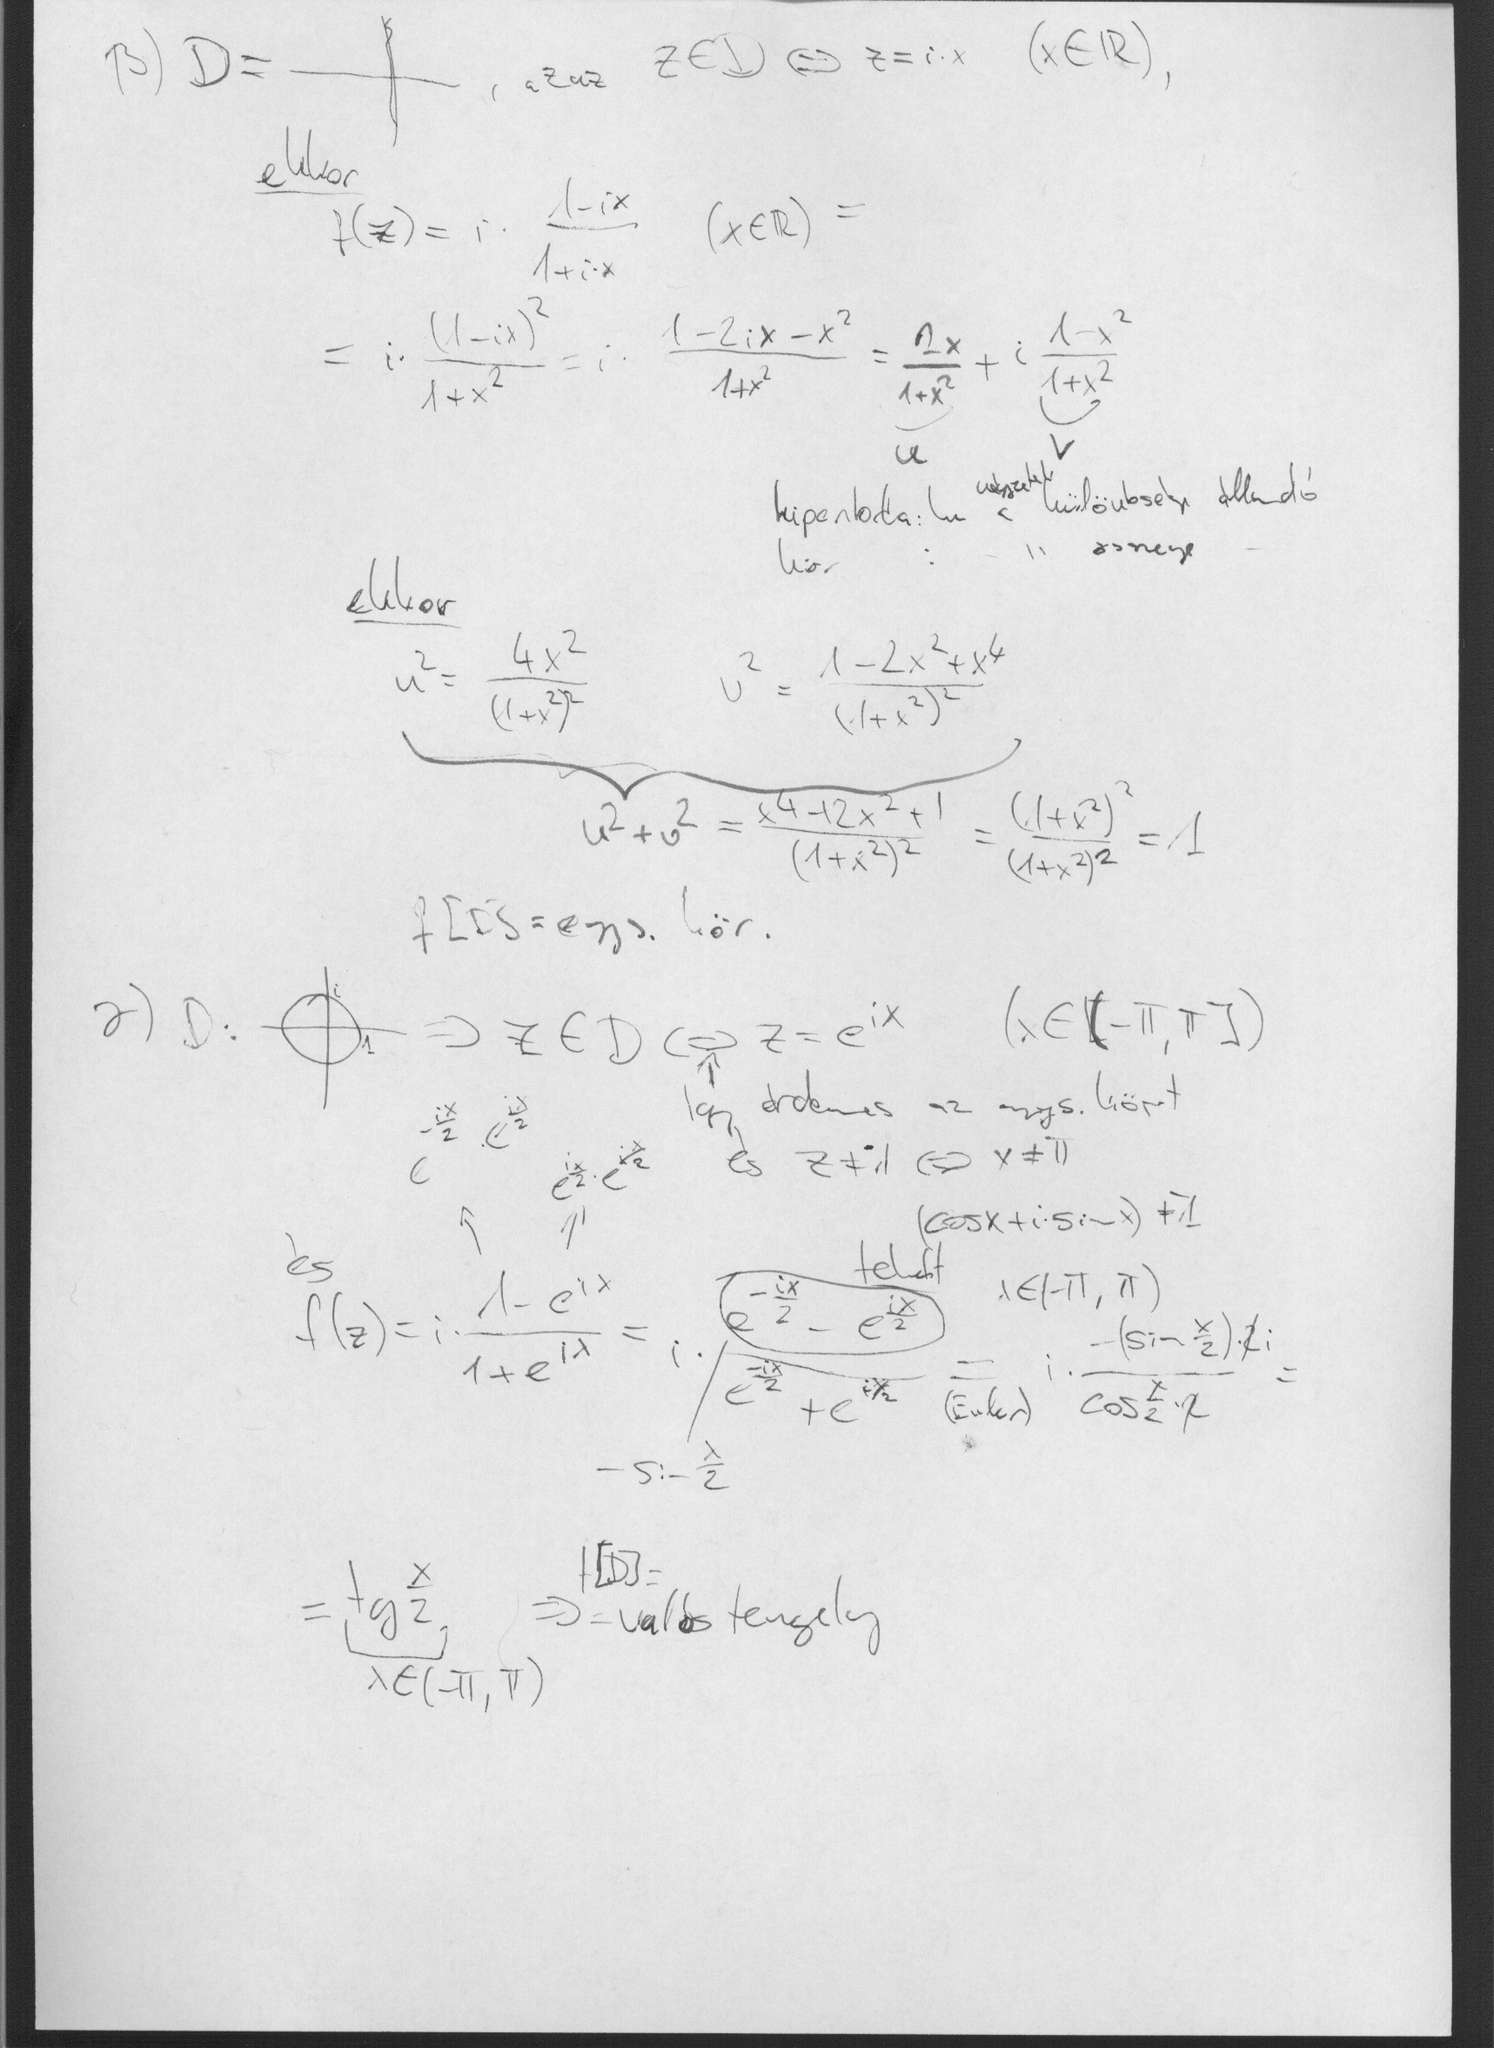 β) D = , azaz z∈D ⇔ z = i·x (x∈ℝ),
ekkor
f(z) = i · (1-ix)/(1+i·x) (x∈ℝ) =
= i · (1-ix)²/(1+x²) = i · (1-2ix-x²)/(1+x²) = 2x/(1+x²) + i (1-x²)/(1+x²)
u v
hiperbola: ha a négyzetek különbsége állandó
kör : - " - összege -
ekkor
u² = 4x²/(1+x²)² v² = (1-2x²+x⁴)/(1+x²)²
u²+v² = (x⁴+2x²+1)/(1+x²)² = (1+x²)²/(1+x²)² = 1
f[D] = egys. kör.
γ) D: i 1 ⇒ z∈D ⇔ z = e^{ix} (x∈[-π,π])
így érdemes az egys. kört
e^{-ix/2} · e^{ix/2} e^{ix/2} · e^{ix/2} és z≠-1 ⇔ x≠π
(cosx+i·sinx) ≠-1
és tehát x∈(-π, π)
f(z) = i · (1-e^{ix})/(1+e^{ix}) = i · (e^{-ix/2} - e^{ix/2})/(e^{-ix/2} + e^{ix/2}) = (Euler) i · (-(sin x/2)·2i)/(cos x/2 ·2) =
-sin x/2
= tg x/2 ⇒ f[D] =
= valós tengely
x∈(-π, π)